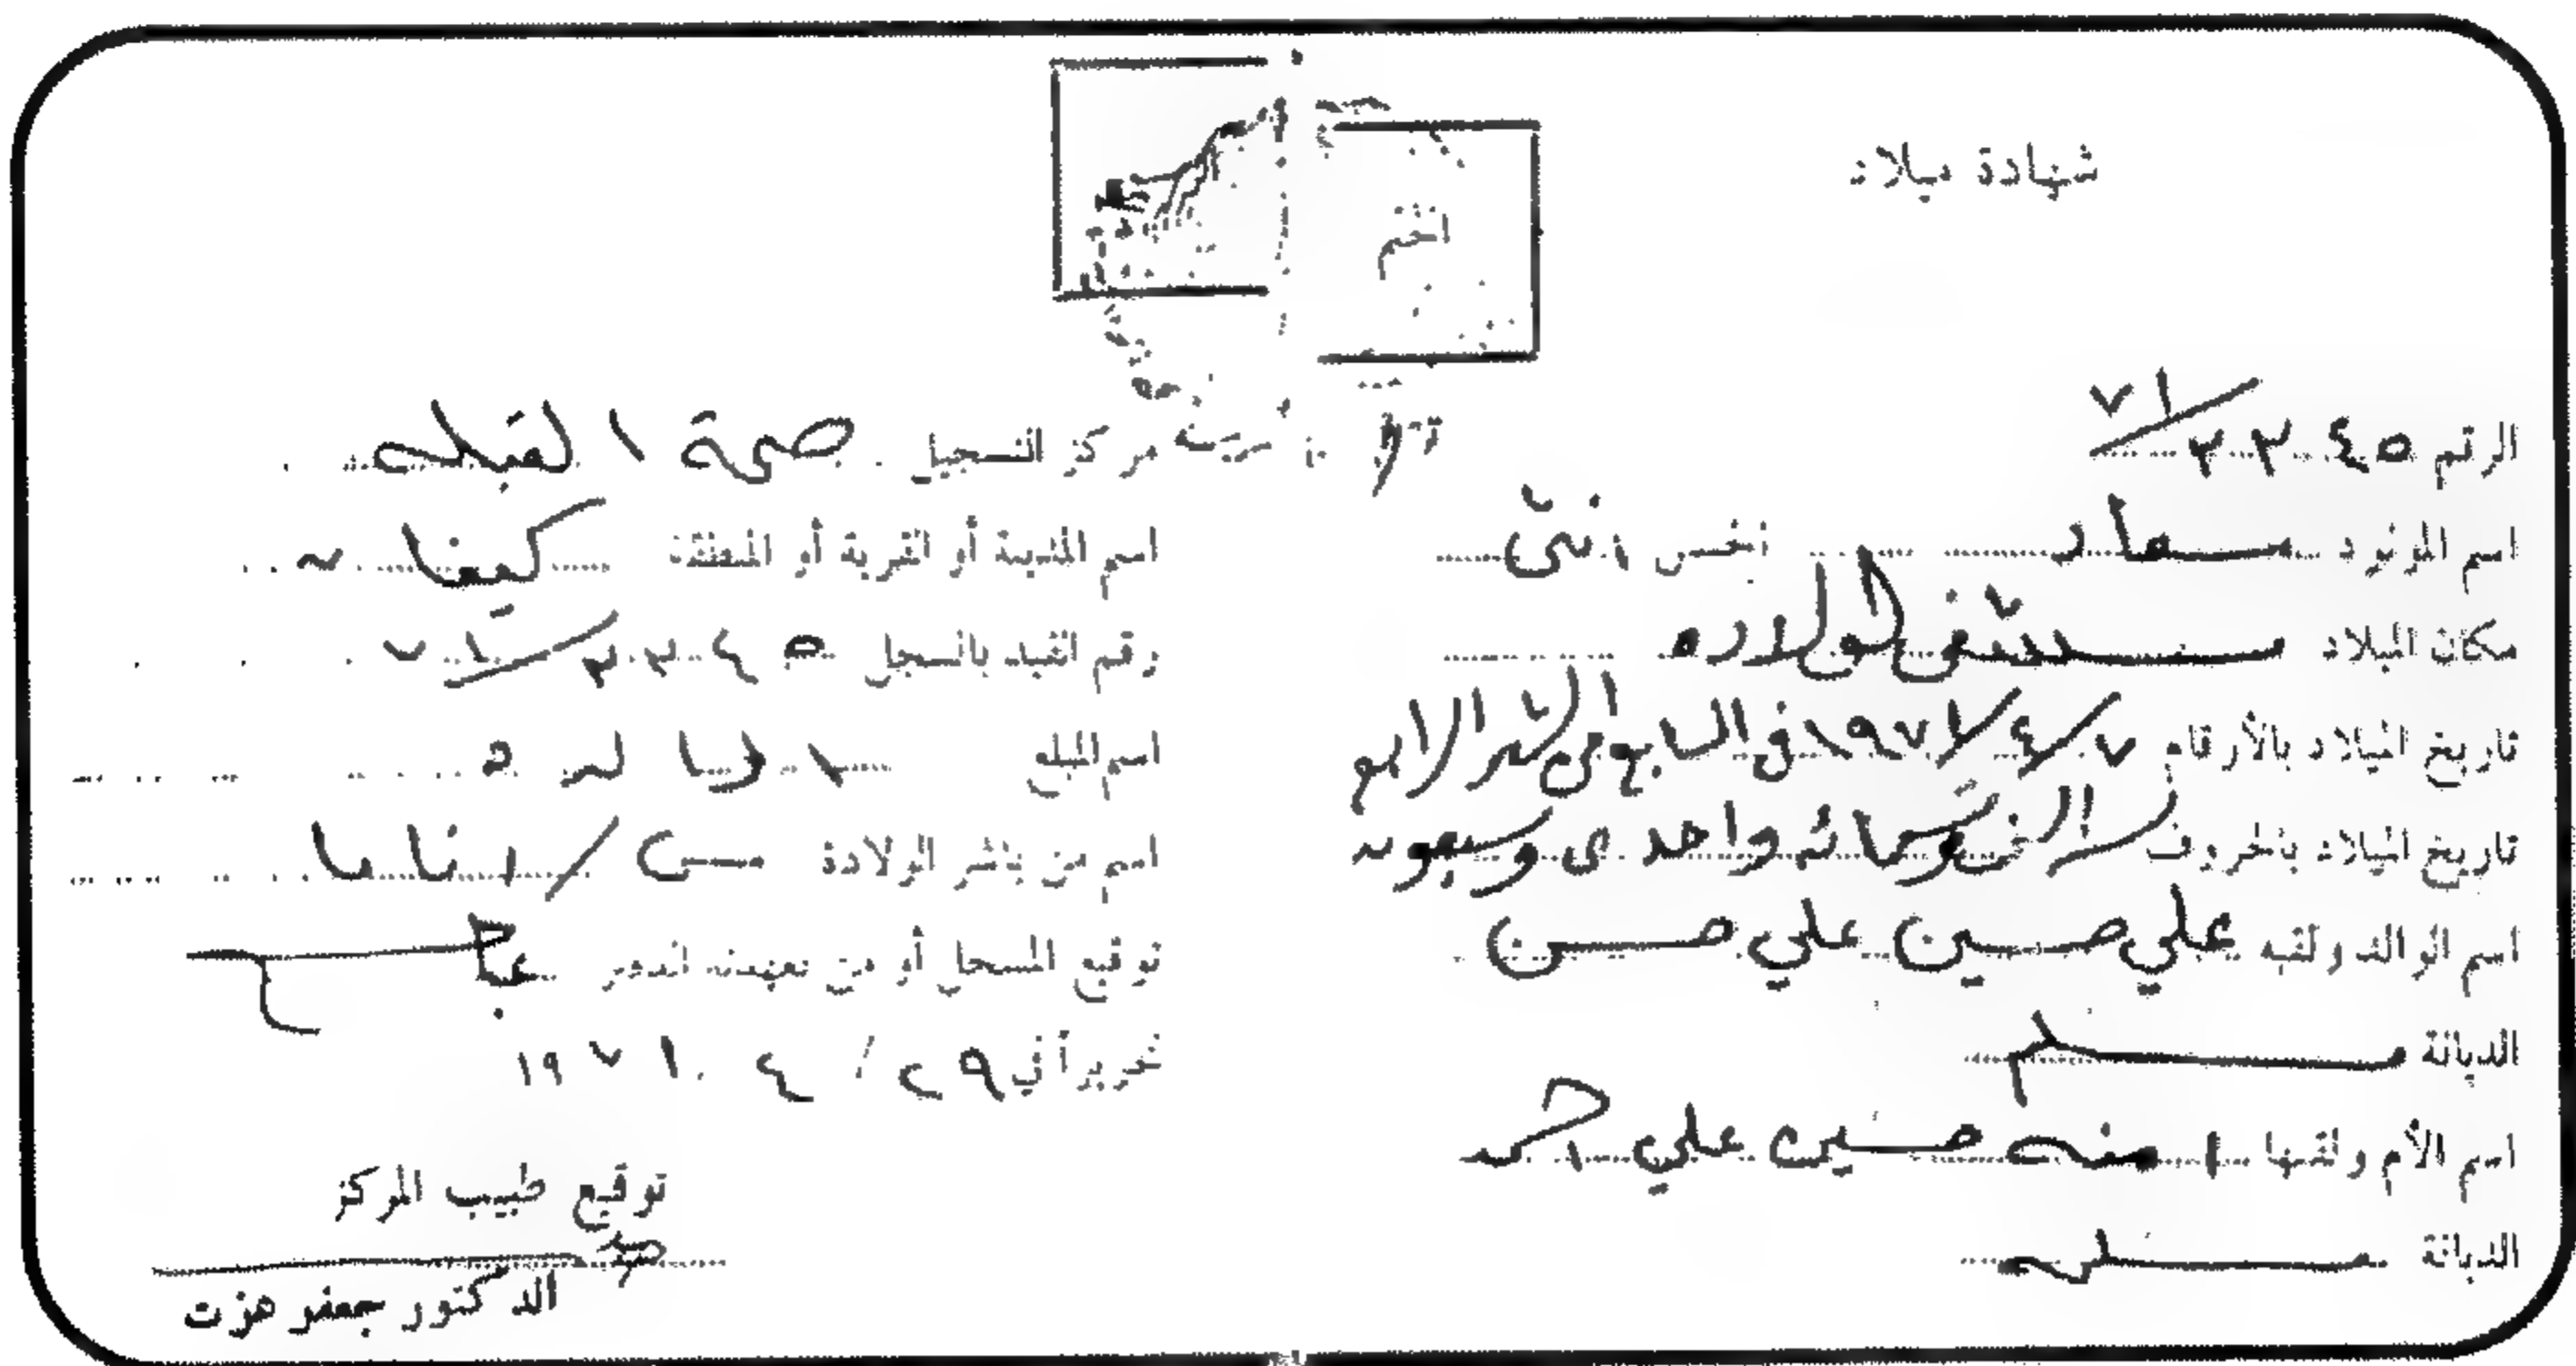 شهادة ميلاد
الختم
الرقم ٢٢٤٥/٧١
اسم المولود سعاد الجنس انثى
مكان الميلاد مستشفى الولاده
تاريخ الميلاد بالأرقام ٧/٤/١٩٧١ في السابع من الشهر الرابع
تاريخ الميلاد بالحروف سنة الف وتسعمائه واحدى وسبعون
اسم الوالد ولقبه علي حسين علي حسن
الديانة مسلم
اسم الأم ولقبها امنه حسين علي احمد
الديانة مسلمه
مركز التسجيل صحة القبله
اسم المدينة أو القرية أو المنطقة كيفان
رقم القيد بالسجل ٢٢٤٥/٧١
اسم المبلغ الوالد
اسم من باشر الولادة
توقيع المسجل أو من بعهدته الدفتر
تحريراً في ٢٩/٤/١٩٧١
توقيع طبيب المركز
الدكتور جعفر عزت